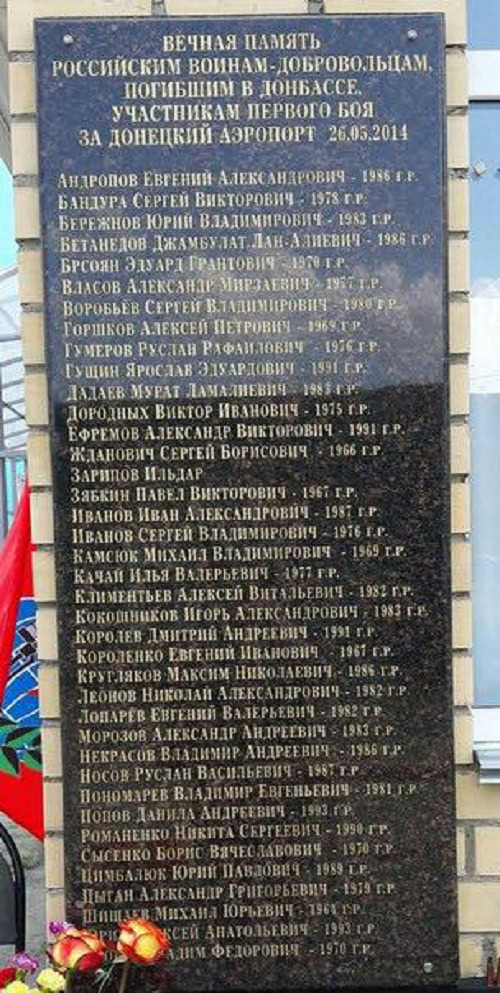 ВЕЧНАЯ ПАМЯТЬ
РОССИЙСКИМ ВОИНАМ-ДОБРОВОЛЬЦАМ,
ПОГИБШИМ В ДОНБАССЕ,
УЧАСТНИКАМ ПЕРВОГО БОЯ
ЗА ДОНЕЦКИЙ АЭРОПОРТ 26.05.2014
АНДРОПОВ ЕВГЕНИЙ АЛЕКСАНДРОВИЧ - 1986 Г.Р.
БАНДУРА СЕРГЕЙ ВИКТОРОВИЧ - 1978 Г.Р.
БЕРЕЖНОВ ЮРИЙ ВЛАДИМИРОВИЧ - 1983 Г.Р.
БЕТАНЕДОВ ДЖАМБУЛАТ ЛАН-АЛИЕВИЧ - 1986 Г.Р.
БРСОЯН ЭДУАРД ГРАНТОВИЧ - 1970 Г.Р.
ВЛАСОВ АЛЕКСАНДР МИРЗАЕВИЧ - 1977 Г.Р.
ВОРОБЬЁВ СЕРГЕЙ ВЛАДИМИРОВИЧ - 1980 Г.Р.
ГОРШКОВ АЛЕКСЕЙ ПЕТРОВИЧ - 1969 Г.Р.
ГУМЕРОВ РУСЛАН РАФАИЛОВИЧ - 1976 Г.Р.
ГУЩИН ЯРОСЛАВ ЭДУАРДОВИЧ - 1991 Г.Р.
ДАДАЕВ МУРАТ ЛАМАЛИЕВИЧ - Г.Р.
ДОРОДНЫХ ВИКТОР ИВАНОВИЧ - 1975 Г.Р.
ЕФРЕМОВ АЛЕКСАНДР ВИКТОРОВИЧ - 1991 Г.Р.
ЖДАНОВИЧ СЕРГЕЙ БОРИСОВИЧ - 1966 Г.Р.
ЗАРИПОВ ИЛЬДАР
ЗЯБКИН ПАВЕЛ ВИКТОРОВИЧ - 1967 Г.Р.
ИВАНОВ ИВАН АЛЕКСАНДРОВИЧ - 1987 Г.Р.
ИВАНОВ СЕРГЕЙ ВЛАДИМИРОВИЧ - 1976 Г.Р.
КАМСЮК МИХАИЛ ВЛАДИМИРОВИЧ - 1969 Г.Р.
КАЧАЙ ИЛЬЯ ВАЛЕРЬЕВИЧ - 1977 Г.Р.
КЛИМЕНТЬЕВ АЛЕКСЕЙ ВИТАЛЬЕВИЧ - 1982 Г.Р.
КОКОШНИКОВ ИГОРЬ АЛЕКСАНДРОВИЧ - 1983 Г.Р.
КОРОЛЕВ ДМИТРИЙ АНДРЕЕВИЧ - 1991 Г.Р.
КОРОЛЕНКО ЕВГЕНИЙ ИВАНОВИЧ - 1967 Г.Р.
КРУГЛЯКОВ МАКСИМ НИКОЛАЕВИЧ - 1986 Г.Р.
ЛЕОНОВ НИКОЛАЙ АЛЕКСАНДРОВИЧ - 1982 Г.Р.
ЛОПАРЁВ ЕВГЕНИЙ ВАЛЕРЬЕВИЧ - 1982 Г.Р.
МОРОЗОВ АЛЕКСАНДР АНДРЕЕВИЧ - 1983 Г.Р.
НЕКРАСОВ ВЛАДИМИР АНДРЕЕВИЧ - 1986 Г.Р.
НОСОВ РУСЛАН ВАСИЛЬЕВИЧ - 1987 Г.Р.
ПОНОМАРЕВ ВЛАДИМИР ЕВГЕНЬЕВИЧ - 1981 Г.Р.
ПОПОВ ДАНИЛА АНДРЕЕВИЧ - 1993 Г.Р.
РОМАНЕНКО НИКИТА СЕРГЕЕВИЧ - 1990 Г.Р.
СЫСЕНКО БОРИС ВЯЧЕСЛАВОВИЧ - 1970 Г.Р.
ЦИМБАЛЮК ЮРИЙ ПАВЛОВИЧ - 1989 Г.Р.
ЦЫГАН АЛЕКСАНДР ГРИГОРЬЕВИЧ - 1979 Г.Р.
ШИШАЕВ МИХАИЛ ЮРЬЕВИЧ - 1964 Г.Р.
АНАТОЛЬЕВИЧ - 1993 Г.Р.
ФЕДОРОВИЧ - 1970 Г.Р.